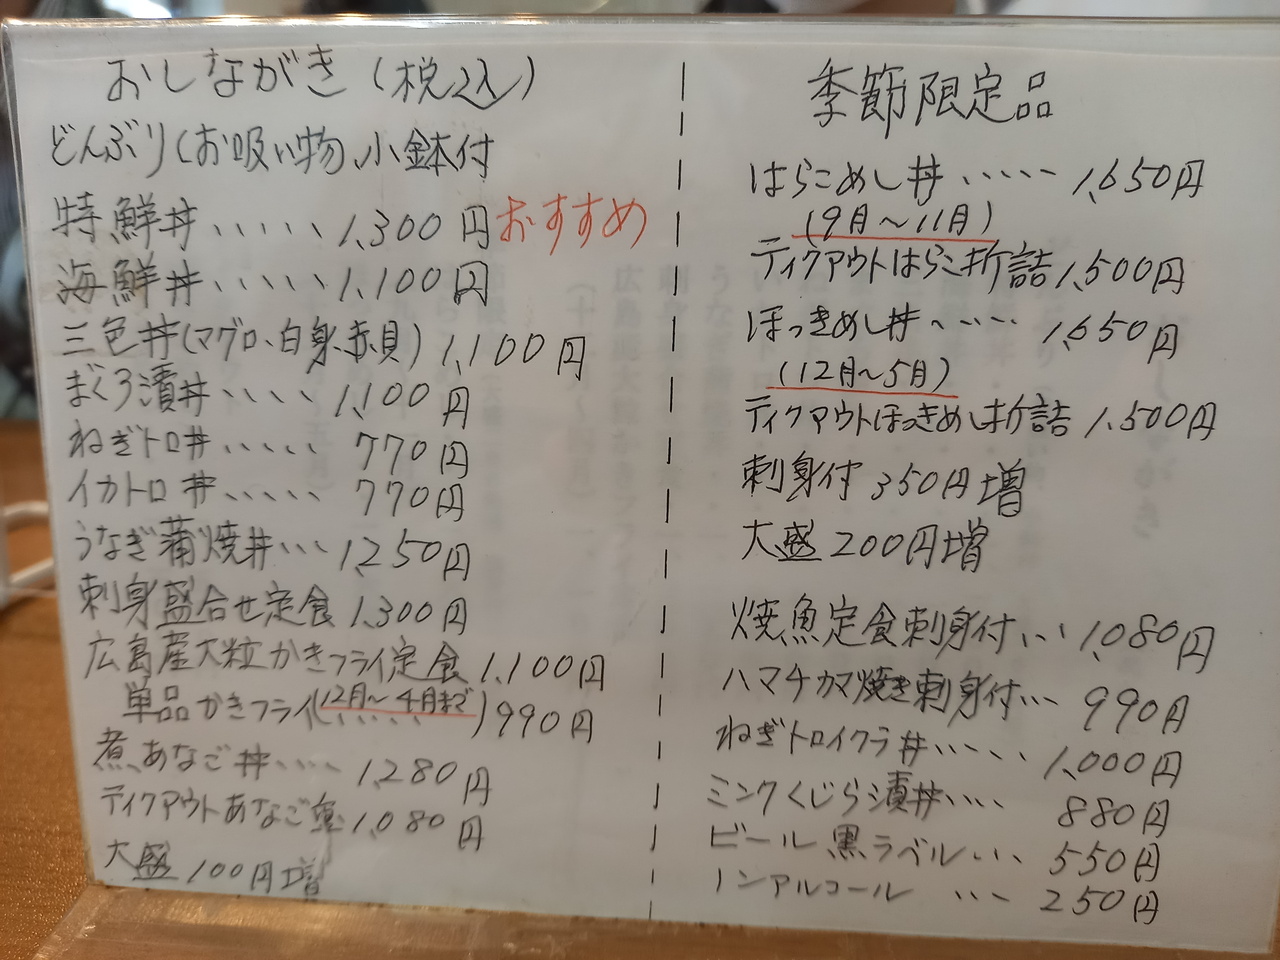 おしながき(税込)
どんぶり(お吸い物、小鉢付
特鮮丼・・・・・1,300円おすすめ
海鮮丼・・・・・1,100円
三色丼(マグロ、白身、赤貝)1,100円
まぐろ漬丼・・・・1,100円
ねぎトロ丼・・・・・770円
イカトロ丼・・・・・770円
うなぎ蒲焼丼・・・1,250円
刺身盛合せ定食1,300円
広島産大粒かきフライ定食1,100円
単品かきフライ(12月〜4月まで)990円
煮あなご丼・・・・1,280円
テイクアウトあなご重1,080円
大盛100円増
季節限定品
はらこめし丼・・・・・1,650円
(9月〜11月)
テイクアウトはらこ折詰1,500円
ほっきめし丼・・・・・1,650円
(12月〜5月)
テイクアウトほっきめし折詰1,500円
刺身付350円増
大盛200円増
焼魚定食刺身付・・・1,080円
ハマチカマ焼き刺身付・・・990円
ねぎトロイクラ丼・・・・・1,000円
ミンクくじら漬丼・・・・880円
ビール黒ラベル・・・550円
ノンアルコール・・・250円